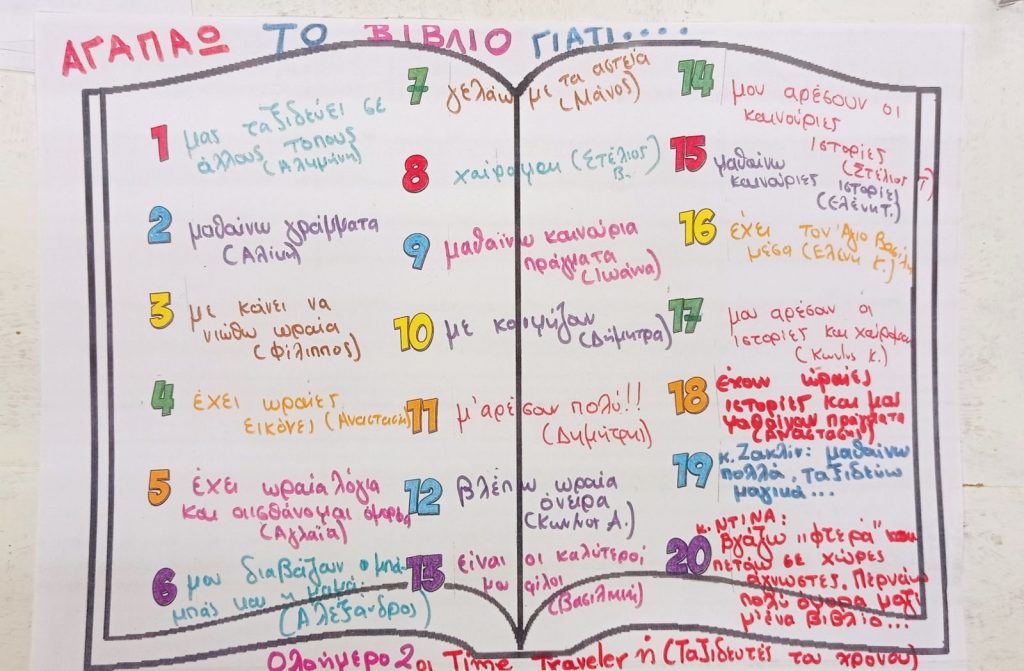 ΑΓΑΠΑΩ ΤΟ ΒΙΒΛΙΟ ΓΙΑΤΙ....
1 μας ταξιδεύει σε
άλλους τόπους
(Αλκμήνη)
2 μαθαίνω γράμματα
(Αλίκη)
3 με κάνει να
νιώθω ωραία
(Φίλιππος)
4 έχει ωραίες
εικόνες (Αναστασία)
5 έχει ωραία λόγια
και αισθάνομαι όμορφα
(Αγλαΐα)
6 μου διαβάζουν ο μπα-
μπάς μου κ η μαμά
(Αλέξανδρος)
7 γελάω με τα αστεία
(Μάνος)
8 χαίρομαι (Στέλιος
Β.)
9 μαθαίνω καινούρια
πράγματα
(Ιωάννα)
10 με κοιμήζουν
(Δήμητρα)
11 μ'αρέσουν πολύ!!
(Δημήτρης)
12 βλέπω ωραία
όνειρα
(Κων/νος Α.)
13 είναι οι καλύτεροι
μου φίλοι
(Βασιλική)
14 μου αρέσουν οι
καινούριες
ιστορίες
(Στέλιος Τ)
15 μαθαίνω
καινούριες ιστορίες
(Ελένη Τ.)
16 έχει τον Άγιο Βασίλη
μέσα (Ελένη Κ.)
17 μου αρέσουν οι
ιστορίες και χαίρομαι
(Κων/νος Κ.)
18 έχουν ωραίες
ιστορίες και μας
μαθαίνουν πράγματα
(Αναστάσης)
19 κ. Ζακλίν: μαθαίνω
πολλά, ταξιδεύω
μαγικά...
20 κ. ΝΤΙΝΑ:
Βγάζω "φτερά" και
πετάω σε χώρες
άγνωστες. Περνάω
πολύ όμορφα μαζί
μ'ένα βιβλίο...
Ολοήμερο 2 οι Time Traveler ή (Ταξιδευτές του χρόνου)